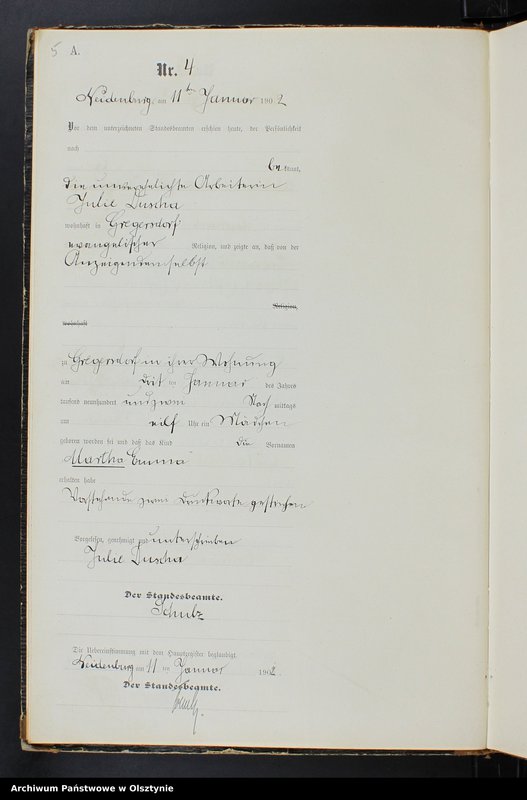 5 A.
Nr. 4
Neidenburg, am 11ten Januar 1902
Vor dem unterzeichneten Standesbeamten erschien heute, der Persönlichkeit
nach
bekannt,
die unverehelichte Arbeiterin
Julie Duscha
wohnhaft in Gregersdorf
evangelischer Religion, und zeigte an, daß von der
Anzeigenden selbst
Religion,
wohnhaft
zu Gregersdorf in ihrer Wohnung
am ten Januar des Jahres
tausend neunhundert und zwei Nachmittags
um elf Uhr ein Mädchen
geboren worden sei und daß das Kind die Vornamen
Martha Emma
erhalten habe
Vorstehende zwei Druckworte gestrichen
Vorgelesen, genehmigt und unterschrieben
Julie Duscha
Der Standesbeamte.
Schulz
Die Uebereinstimmung mit dem Hauptregister beglaubigt
Neidenburg am 11 ten Januar 1902.
Der Standesbeamte.
Schulz.
Archiwum Państwowe w Olsztynie